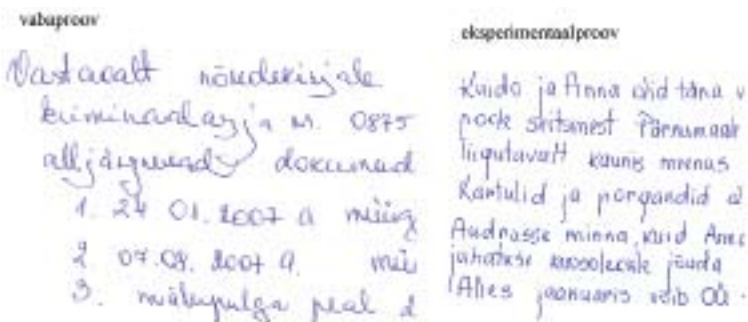 vabaproov
Vastavalt nõudekirjale
kriminaalasja nr. 0875
alljärgnevad dokumend
1. 24 01.2007 a müüg
2 07.09. 2007 a. mü
3. mälupulga peal d
eksperimentaalproov
Kuido ja Anna olid täna v
poole seitsmest Pärnumaale
liigutavalt kaunis meenus
Kartulid ja porgandid
Audrusse minna, kuid
jõuda
Alles jaanuaris võib OÜ